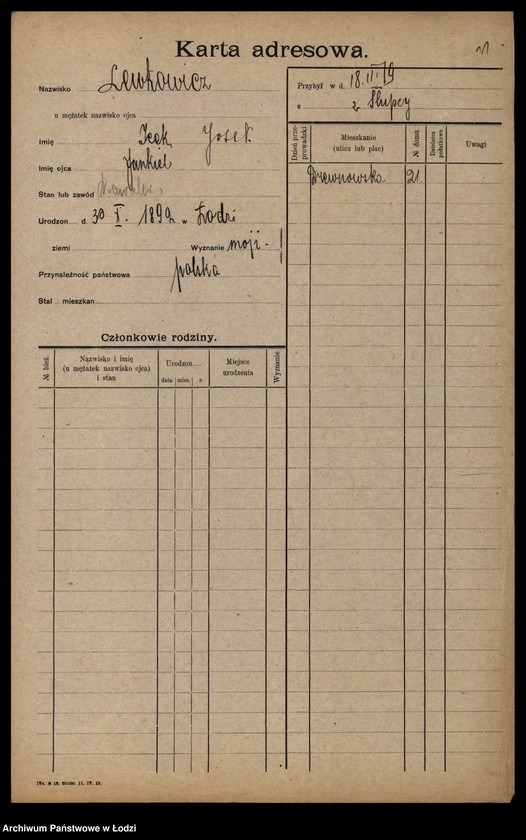 Karta adresowa.
Nazwisko Lewkowicz
u mężatek nazwisko ojca
Imię Icek Josek
Imię ojca Jankiel
Stan lub zawód
Urodzon d. 30 X. 1892 w Łodzi
ziemi Wyznanie mojż-
Przynależność państwowa polska
Stał mieszkan
Przybył w d. 18. III. 19
z z Słupcy
Dzień prze-prowadzki
Mieszkanie (ulica lub plac)
№ domu
Dzielnica podatkowa
Uwagi
Drewnowska 21
Członkowie rodziny.
№ bież.
Nazwisko i imię
(u mężatek nazwisko ojca)
i stan
Urodzon
dnia mies. r.
Miejsce urodzenia
Wyznanie
Archiwum Państwowe w Łodzi